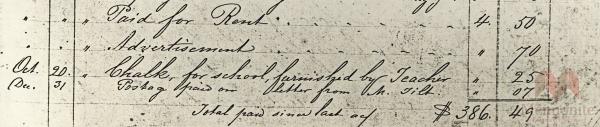 " " " Paid for Rent 4 50
" " " Advertisement " 70
Oct. 20 " Chalk, for school, furnished by Teacher " 25
Dec. 31 Postag paid on letter from M. Tilt " 07
Total paid since last acf $ 386. 49